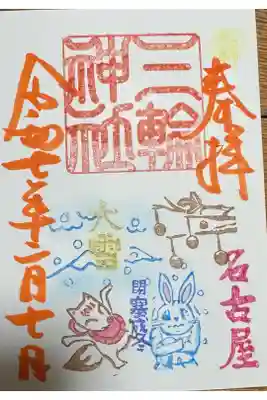 奉拝
名古屋
三輪
神社
大雪
閉塞成冬
令和七年十二月七日